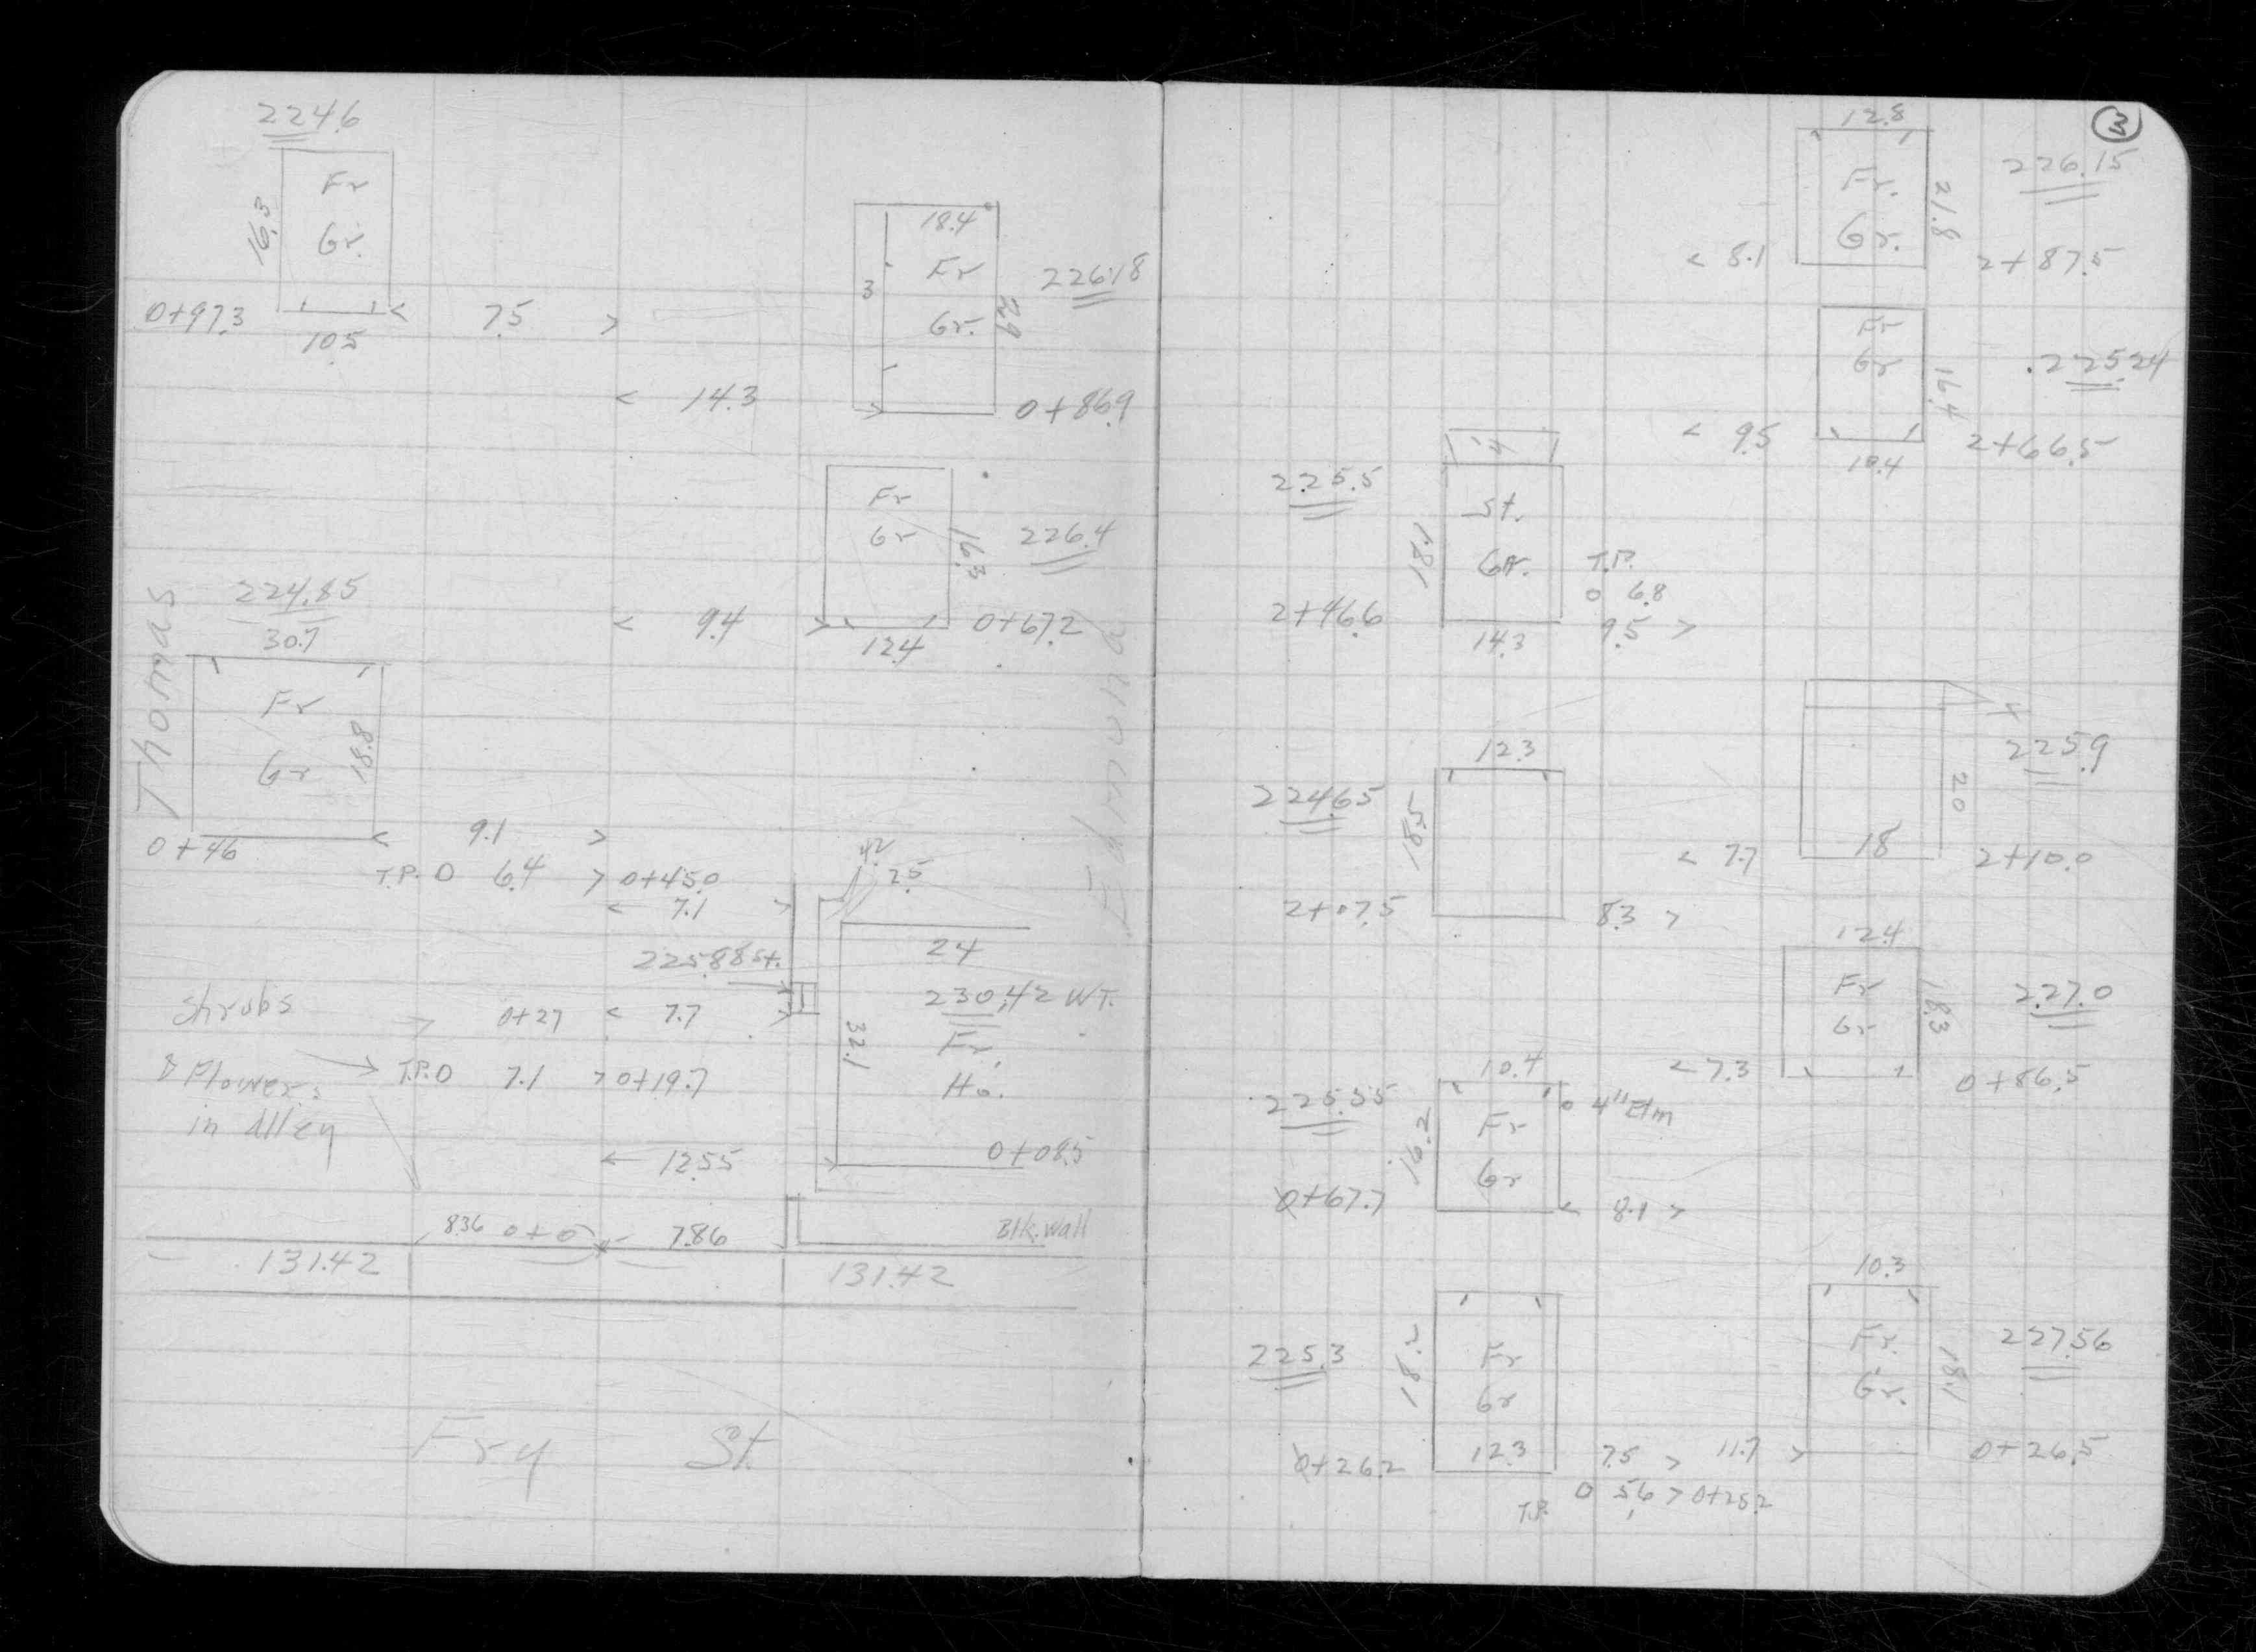 224.6
Fr
16.3
Gr.
0+97.3
< 7.5 >
10.5
18.4
3
Fr
226.18
Gr.
29
< 14.3 >
0+86.9
Fr
Gr
16.3
226.4
< 9.4 >
0+67.2
12.4
Thomas
Edmund
224.85
30.7
Fr
Gr
18.8
0+46
< 9.1 >
T.P. O 6.4 > 0+45.0
< 7.1 >
4.2
2.5
24
225.88 St.
230.42 WT.
Shrubs
& Flowers
in Alley
> 0+27 < 7.7 >
32.1
Fr.
Ho.
T.P. O 7.1 > 0+19.7
← 12.55
0+08.5
8.36 0+0 7.86
Blk. Wall
131.42
131.42
Fry St.
3
12.8
Fr.
Gr.
21.8
226.15
< 8.1
2+87.5
Fr
Gr
16.4
225.24
< 9.5
10.4
2+66.5
14
225.5
St.
18.1
Gr.
T.P.
O 6.8
2+46.6
14.3
9.5 >
4
225.9
20
< 7.7
18
2+10.0
12.3
224.65
18.5
2+07.5
8.3 >
12.4
Fr
Gr
18.3
227.0
< 7.3
0+86.5
10.4
225.55
O 4" Elm
16.2
Fr
Gr
0+67.7
< 8.1 >
10.3
Fr.
Gr.
18.1
227.56
225.3
18.2
Fr
Gr
0+26.2
12.3
7.5 > 11.7 >
0+26.5
T.P. O 5.6 > 0+25.2